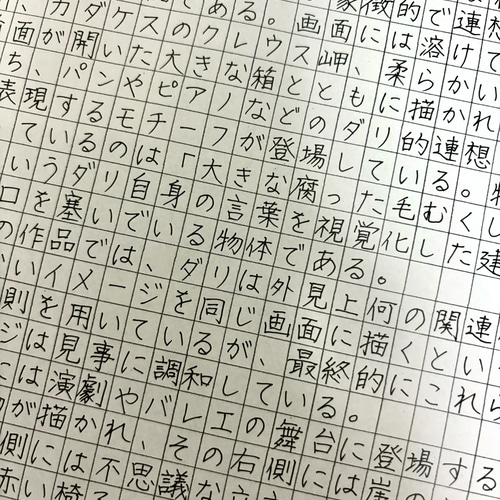 象徴的で連想
てある。画面には溶けて
カダケスのクレウス岬、柔らかい
面が開いた大きな箱とともに描かれ
ち、パンやピアノなどのダリ的連想
表現するモチーフが登場している。物
ているのは「大きな腐った毛むくし
いうダリ自身の言葉を視覚化した建
口を塞いでいる物体である。
の作品では、ダリは外見上何の関連
いイメージを同じ画面に描くという
則を用いているが、最終的にこれら
ジは見事に調和している。
には演劇やバレエの舞台に登場する
が描かれ、その右側には崖
側には不思議な
赤い椅